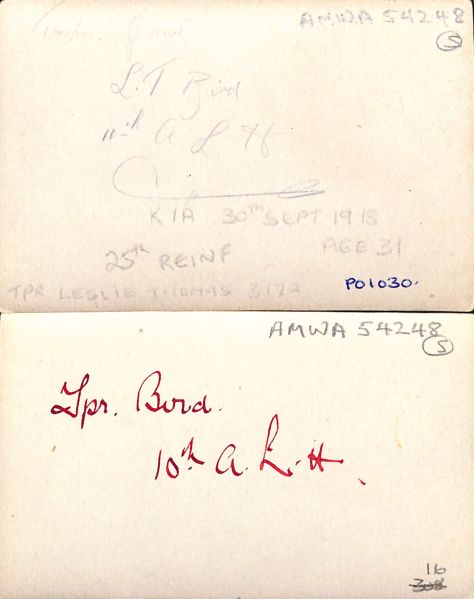 AMWA 54248
S
L.T Bird
11th A L H
KIA 30TH SEPT 1918
25th REINF AGE 31
TPR LESLIE THOMAS 3172
P01030.
AMWA 54248
S
Tpr. Bird.
10th A. L. H.
16
308